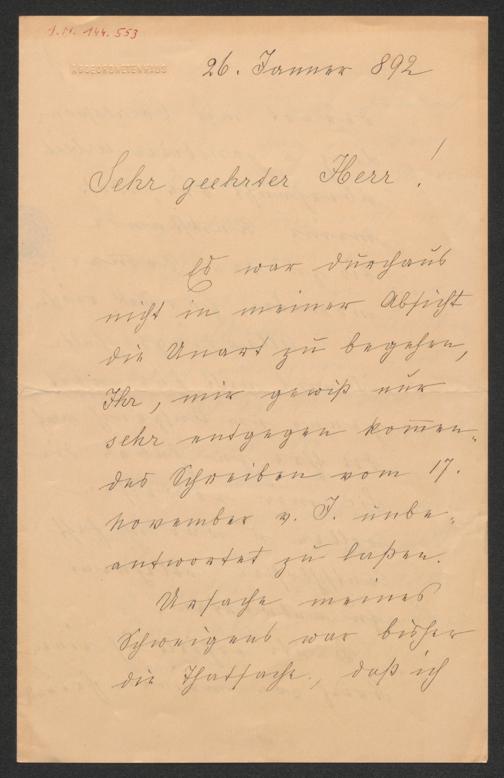 I.N. 144.553
ABGEORDNETENHAUS
26. Jänner 892
Sehr geehrter Herr!
Es war durchaus
nicht in meiner Absicht
die Unart zu begehen,
Ihr, mir gewiß nur
sehr entgegen kom̄en-
des Schreiben vom 17.
November v. J. unbe-
antwortet zu laßen.
Ursache meines
Schweigens war bisher
die Thatsache, daß ich